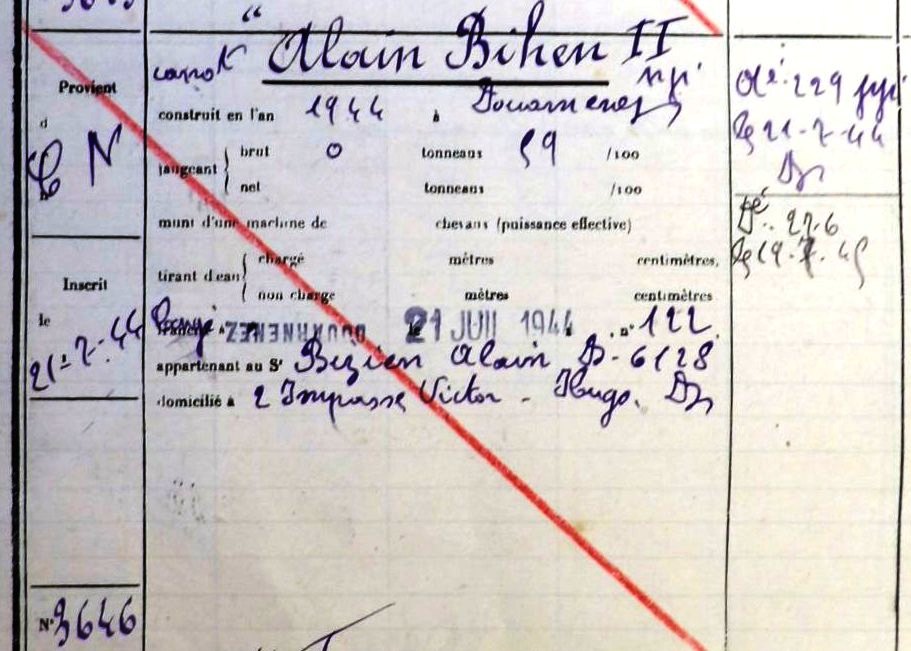 "
Alain Bihen II
canot
Provient
d
C N
construit en l'an 1944 à Douarnenez
jaugeant { brut 0 tonneaux 59 /100
net tonneaux /100
muni d'une machine de chevaux (puissance effective)
tirant d'eau { chargé mètres centimètres,
non chargé mètres centimètres
Inscrit
le
21-7-44
DOUARNENEZ le 21 JUIL 1944 n° 122
appartenant au Sr Bezien Alain D - 6128
domicilié à 2 Impasse Victor - Hugo. Dz
N° 3646
229
Dz 21-7-44
Dz